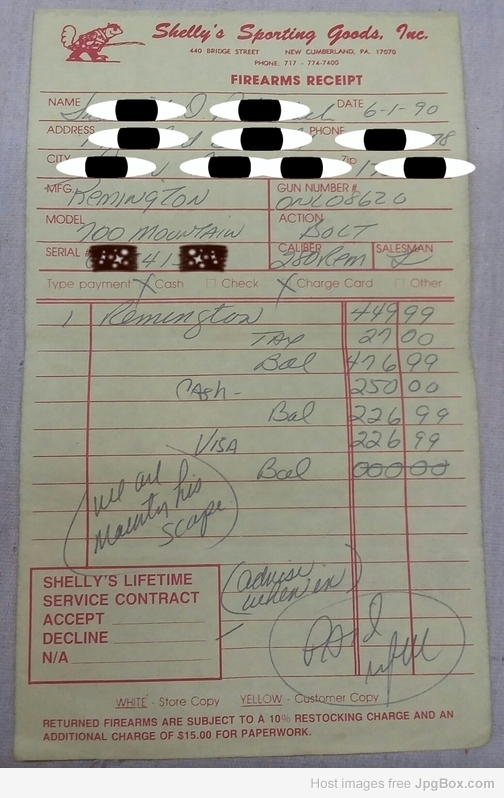 Shelly's Sporting Goods, Inc.
440 BRIDGE STREET NEW CUMBERLAND, PA. 17070
PHONE: 717 - 774-7400
FIREARMS RECEIPT
NAME DATE 6-1-90
ADDRESS PHONE 78
CITY Zip
MFG. Remington GUN NUMBER # ONL08620
MODEL 700 MOUNTAIN ACTION BOLT
SERIAL # 41 CALIBER 280 Rem SALESMAN
Type payment X Cash Check X Charge Card Other
1 Remington 449 99
TAX 27 00
Bal 476 99
CASh - 250 00
Bal 226 99
VISA 226 99
Bal 000 00
we are
mounting his
scope
(advise
when in)
SHELLY'S LIFETIME
SERVICE CONTRACT
ACCEPT
DECLINE
N/A
PAid
in full
WHITE - Store Copy YELLOW - Customer Copy
RETURNED FIREARMS ARE SUBJECT TO A 10% RESTOCKING CHARGE AND AN
ADDITIONAL CHARGE OF $15.00 FOR PAPERWORK.
Host images free JpgBox.com